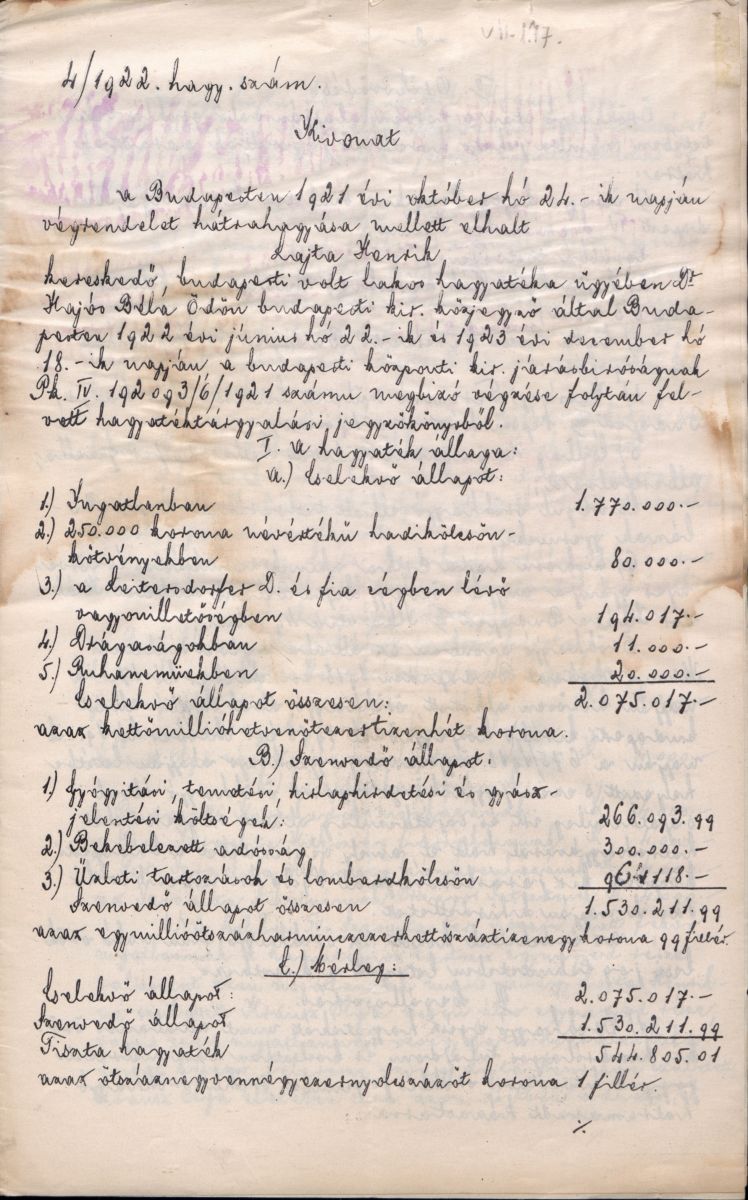 VII-1.17.
4/1922. hagy. szám.
Kivonat
a Budapesten 1921 évi október hó 24.-ik napján
végrendelet hátrahagyása mellett elhalt
Lajta Henrik
kereskedő, budapesti volt lakos hagyatéka ügyében Dr
Hajós Béla Ödön budapesti kir. közjegyző által Buda-
pesten 1922 évi június hó 22.-ik és 1923 évi december hó
18.-ik napján, a budapesti központi kir. járásbiróságnak
Pk. IV. 192093/6/1921 számu megbizó végzése folytán fel-
vett hagyatéktárgyalási jegyzőkönyvből.
I. A hagyaték állaga:
a.) Cselekvő állapot:
1.) Ingatlanban 1.770.000.-
2.) 250.000 korona névértékű hadikölcsön-
kötvényekben 80.000.-
3.) a Leitersdorfer D. és fia cégben lévő
vagyonilletőségben 194.017.-
4.) Drágaságokban 11.000.-
5.) Ruhaneműekben 20.000.-
Cselekvő állapot összesen: 2.075.017.-
azaz kettőmillióhetvenötezertizenhét korona.
B.) Szenvedő állapot.
1.) Gyógyitási, temetési, hirlaphirdetési és gyász-
jelentési költségek: 266.093.99
2.) Bekebelezett adósság 300.000.-
3.) Üzleti tartozások és lombardkölcsön 964118.-
Szenvedő állapot összesen 1.530.211.99
azaz egymillióötszázharminczezerkettőszáztizenegy korona 99 fillér.
C.) Mérleg:
Cselekvő állapot: 2.075.017.-
Szenvedő állapot 1.530.211.99
Tiszta hagyaték 544.805.01
azaz ötszáznegyvennégyezernyolcszázöt korona 1 fillér.
./.